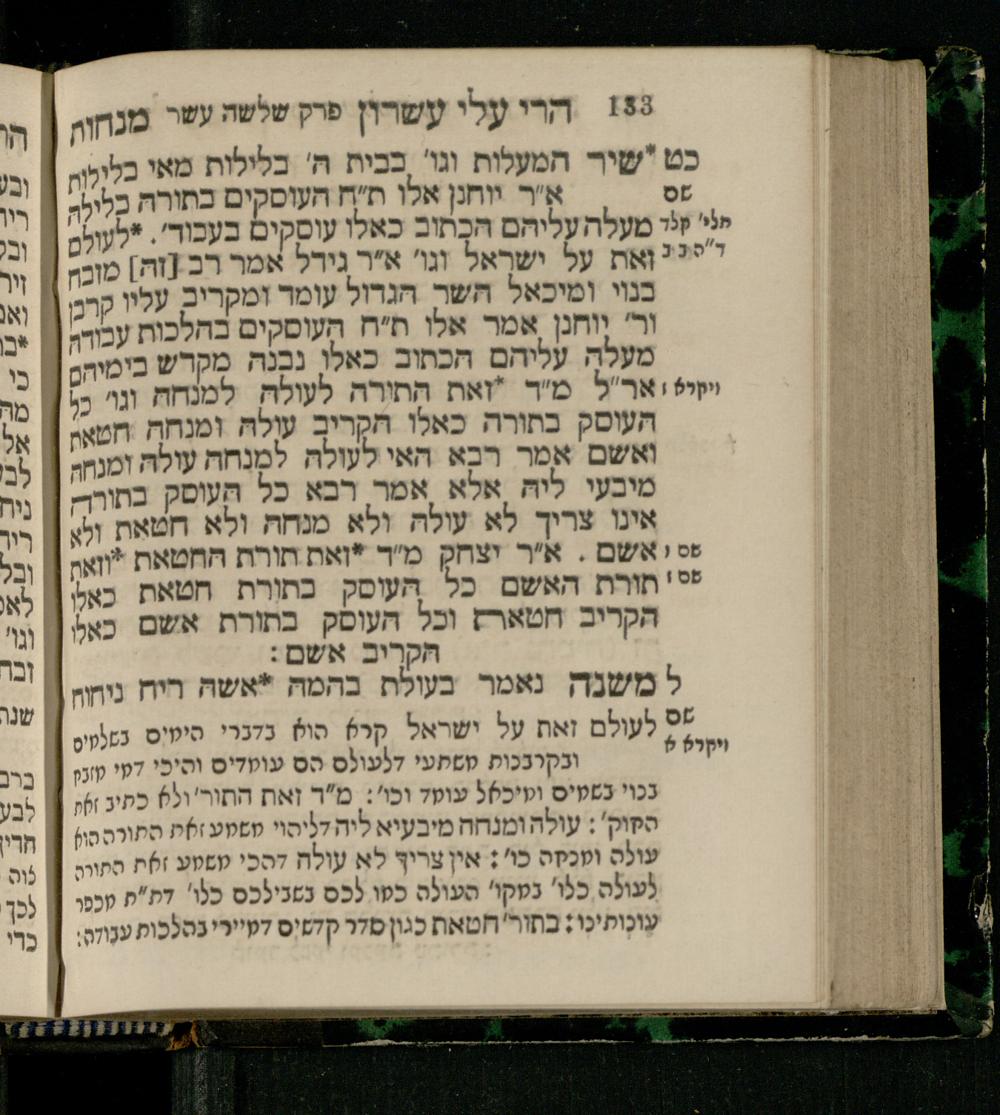 133 הרי עלי עשרון פרק שלשה עשר מנחות
כט *שיר המעלות וגו' בבית ה' בלילות מאי בלילות
שס א"ר יוחנן אלו ת"ח העוסקים בתורה בלילה
תלי' קלד מעלה עליהם הכתוב כאלו עוסקים בעבוד'. *לעולם
ד"ה ב ב זאת על ישראל וגו' א"ר גידל אמר רב [זה] מזבח
בנוי ומיכאל השר הגדול עומד ומקריב עליו קרבן
ור' יוחנן אמר אלו ת"ח העוסקים בהלכות עבודה
מעלה עליהם הכתוב כאלו נבנה מקדש בימיהם
ויקרא ו אר"ל מ"ד *זאת התורה לעולה למנחה וגו' כל
העוסק בתורה כאלו הקריב עולה ומנחה חטאת
ואשם אמר רבא האי לעולה למנחה עולה ומנחה
מיבעי ליה אלא אמר רבא כל העוסק בתורה
אינו צריך לא עולה ולא מנחה ולא חטאת ולא
שס ו אשם. א"ר יצחק מ"ד *זאת תורת החטאת *וזאת
שס ז תורת האשם כל העוסק בתורת חטאת כאלו
הקריב חטאת וכל העוסק בתורת אשם כאלו
הקריב אשם:
ל משנה נאמר בעולת בהמה *אשה ריח ניחוח
שס לעולם זאת על ישראל קרא הוא בדברי הימים בשלמים
ויקרא א ובקרבנות משתעי דלעולם הם עומדים והיכי דמי מזבח
בנוי בשמים ומיכאל עומד וכו': מ"ד זאת התור' ולא כתיב זאת
החוק': עולה ומנחה מיבעיא ליה דליהוי משמע זאת התורה הוא
עולה ומנחה כו': אין צריך לא עולה דהכי משמע זאת התורה
לעולה כלו' במקו' העולה כמו לכם בשבילכם כלו' דת"ת מכפר
עונותינו: בתור' חטאת כגון סדר קדשים דמיירי בהלכות עבודה: